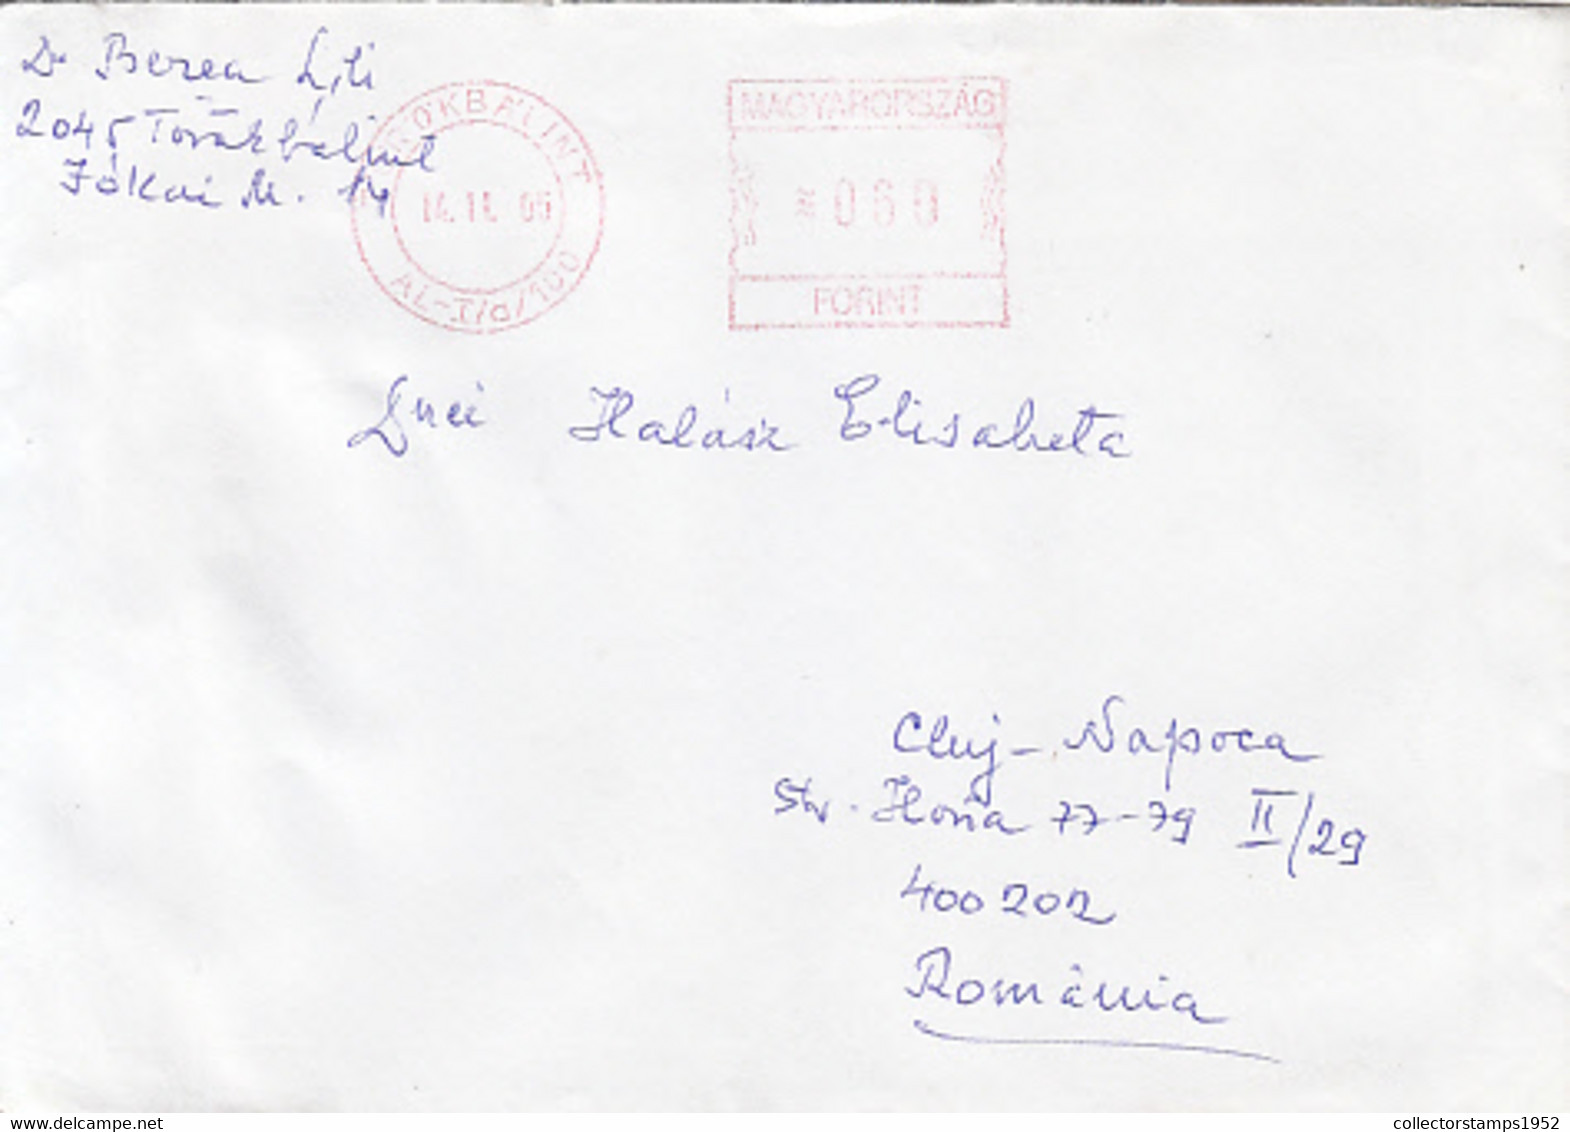 Dr Berea Lili
2045 Törökbálint
Jókai M. 14
ÖKBÁLINT
14.11. 05
AL-I/d/100
MAGYARORSZÁG
*060
FORINT
Halász Elisabeta
Cluj-Napoca
Str. Horia 77-79 II/29
400202
România
delcampe.net
collectorstamps1952